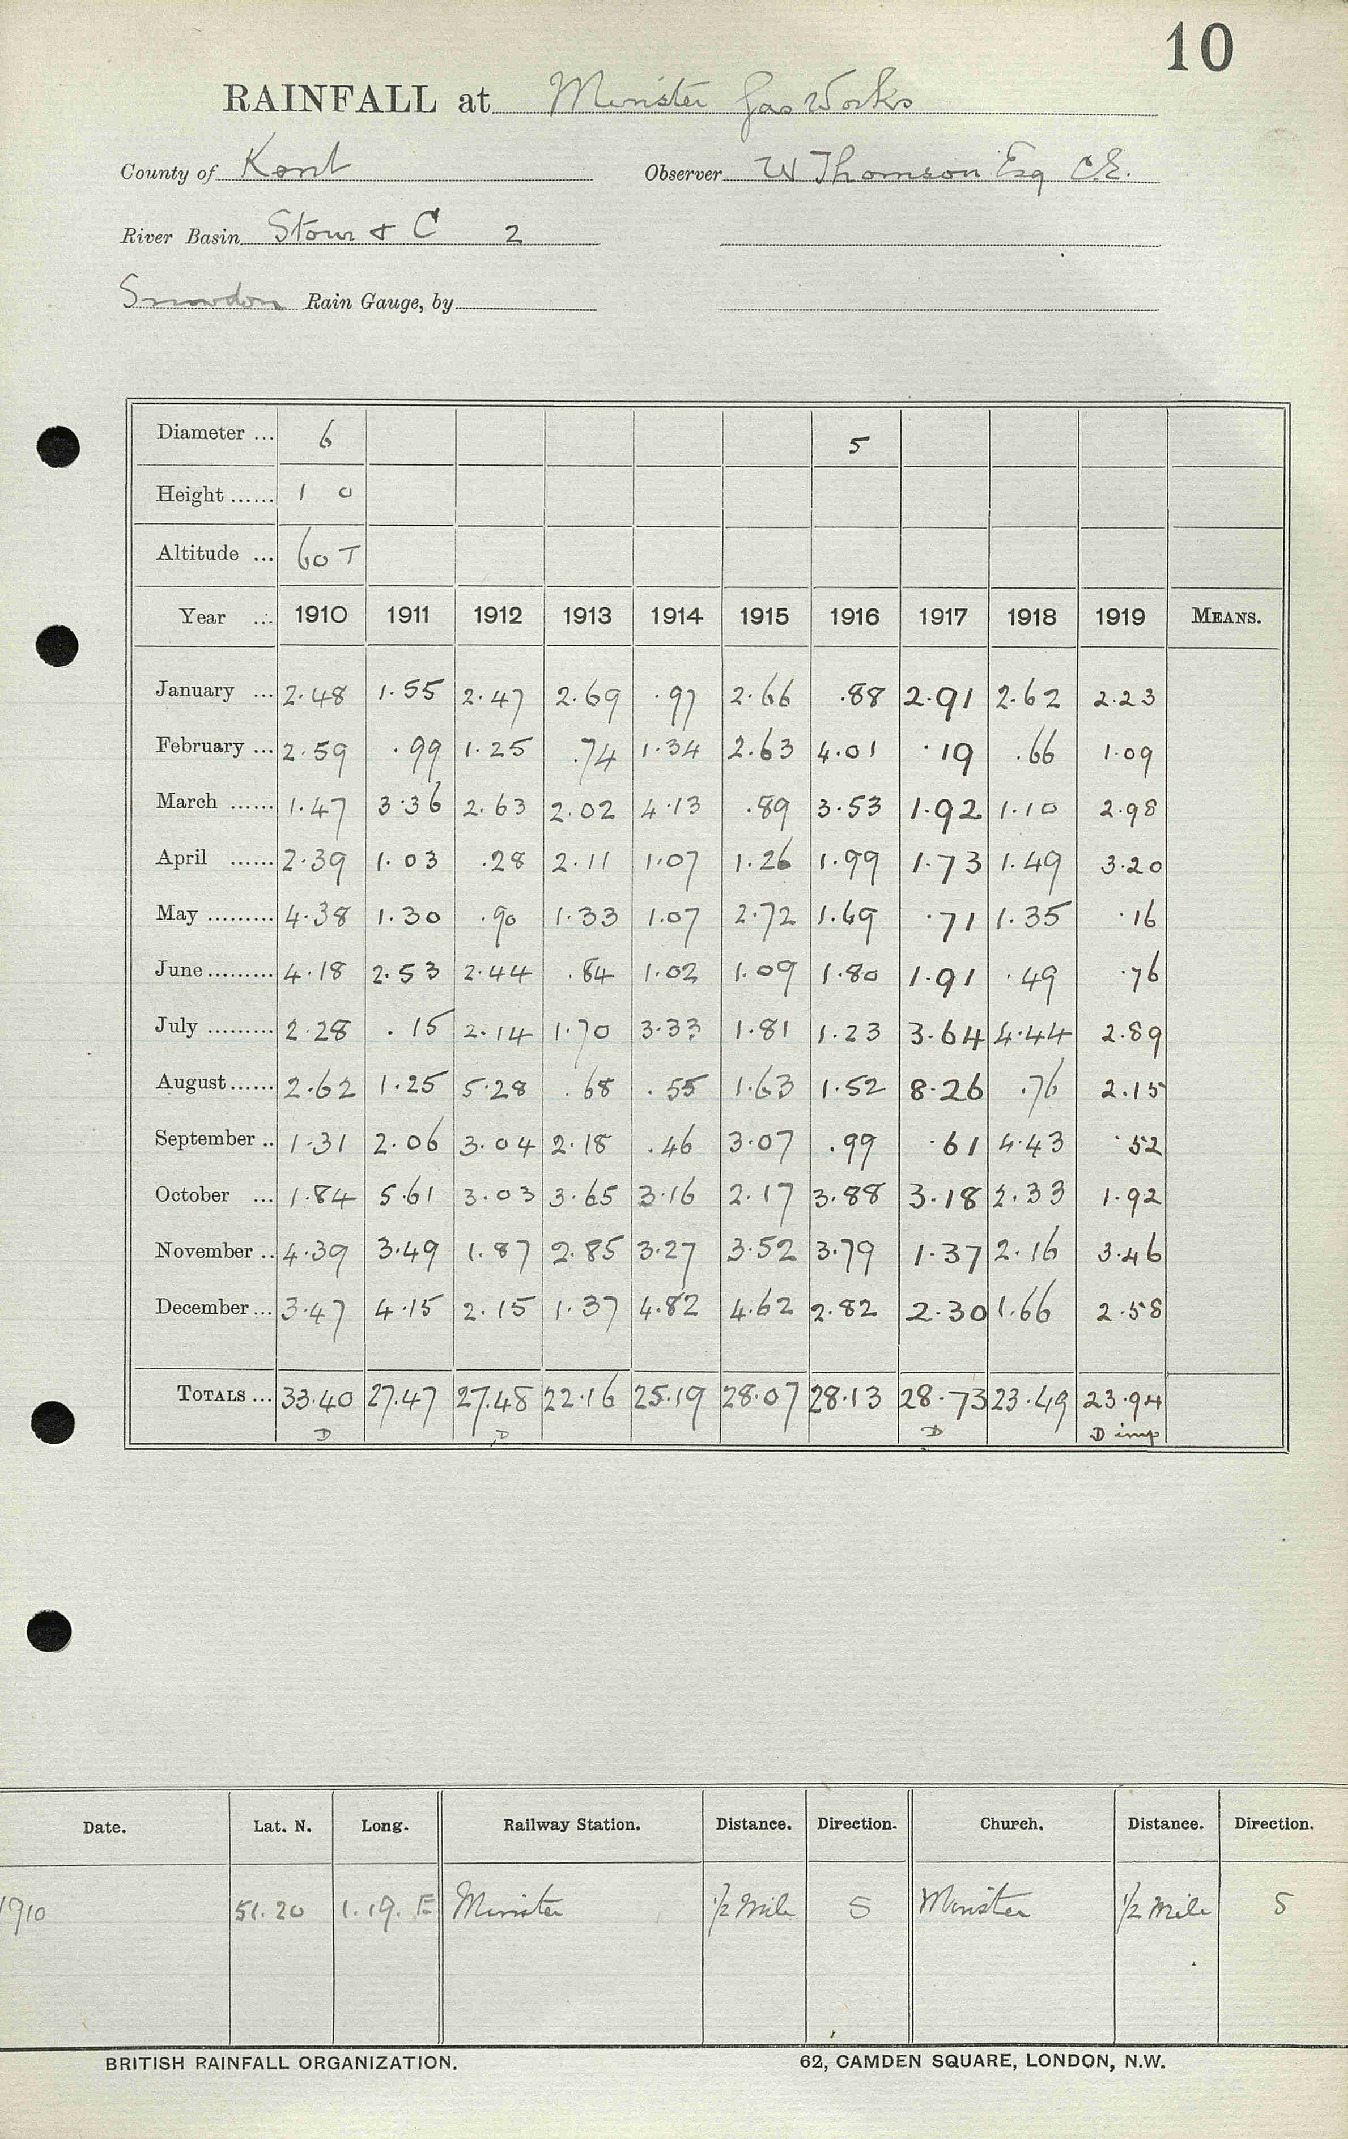 10
RAINFALL at Minster Gas Works
County of Kent Observer W Thomson Esq C.E.
River Basin Stour & C 2
Snowdon Rain Gauge, by
Diameter ... 6 5
Height ...... 1 0
Altitude ... 60 T
Year ... 1910 1911 1912 1913 1914 1915 1916 1917 1918 1919 MEANS.
January ... 2.48 1.55 2.47 2.69 .97 2.66 .88 2.91 2.62 2.23
February ... 2.59 .99 1.25 .74 1.34 2.63 4.01 .19 .66 1.09
March ...... 1.47 3.36 2.63 2.02 4.13 .89 3.53 1.92 1.10 2.98
April ...... 2.39 1.03 .28 2.11 1.07 1.26 1.99 1.73 1.49 3.20
May ......... 4.38 1.30 .90 1.33 1.07 2.72 1.69 .71 1.35 .16
June ......... 4.18 2.53 2.44 .84 1.02 1.09 1.80 1.91 .49 .76
July ......... 2.28 .15 2.14 1.70 3.33 1.81 1.23 3.64 4.44 2.89
August ...... 2.62 1.25 5.28 .68 .55 1.63 1.52 8.26 .76 2.15
September .. 1.31 2.06 3.04 2.18 .46 3.07 .99 .61 4.43 .52
October ... 1.84 5.61 3.03 3.65 3.16 2.17 3.88 3.18 2.33 1.92
November .. 4.39 3.49 1.87 2.85 3.27 3.52 3.79 1.37 2.16 3.46
December ... 3.47 4.15 2.15 1.37 4.82 4.62 2.82 2.30 1.66 2.58
TOTALS ... 33.40 27.47 27.48 22.16 25.19 28.07 28.13 28.73 23.49 23.94
D D D D imp
Date. Lat. N. Long. Railway Station. Distance. Direction. Church. Distance. Direction.
1910 51.20 1.19. E Minster 1/2 Mile S Minster 1/2 Mile S
BRITISH RAINFALL ORGANIZATION. 62, CAMDEN SQUARE, LONDON, N.W.